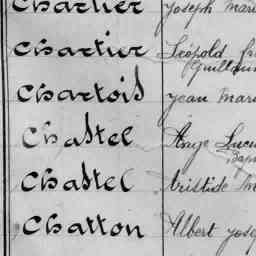 Chartier Joseph Mari
Chartier Léopold
Guillau
Chartois Jean Mari
Chastel Ange Lucie
Bap
Chastel Aristide
Chatton Albert Jose